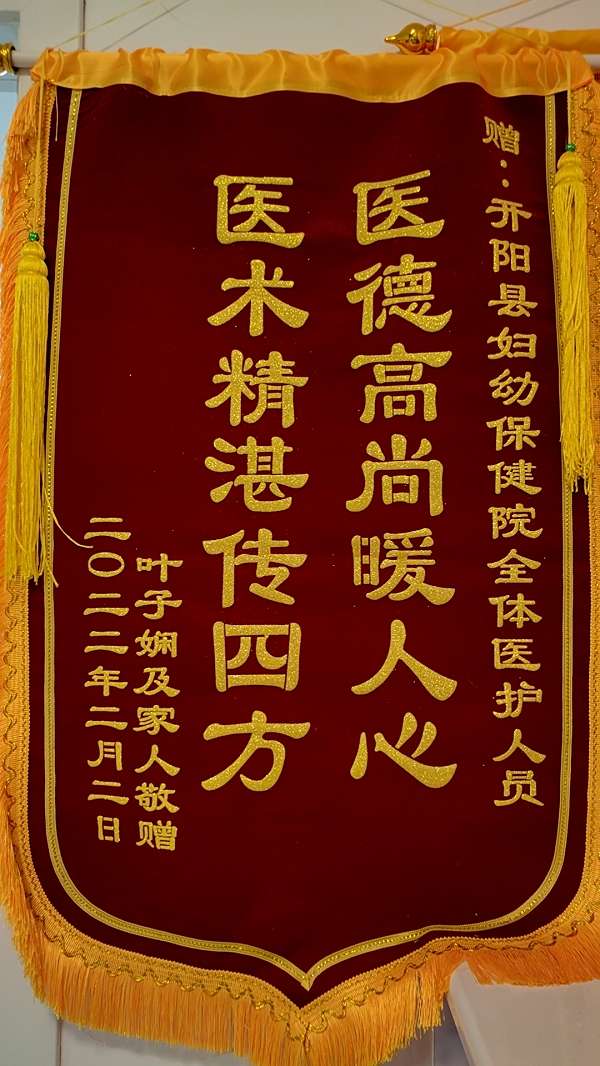 赠：开阳县妇幼保健院全体医护人员
医德高尚暖人心
医术精湛传四方
叶子娴及家人敬赠
二〇二二年二月二日